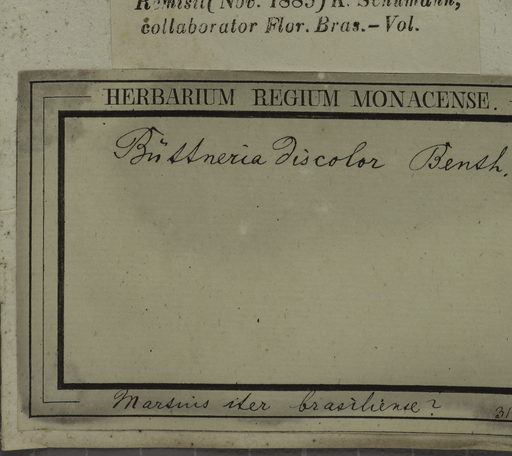 Remisit (Nov. 1885) K. Schumann,
collaborator Flor. Bras.–Vol.
HERBARIUM REGIUM MONACENSE.
Büttneria discolor Benth.
Martius iter brasiliense?
31